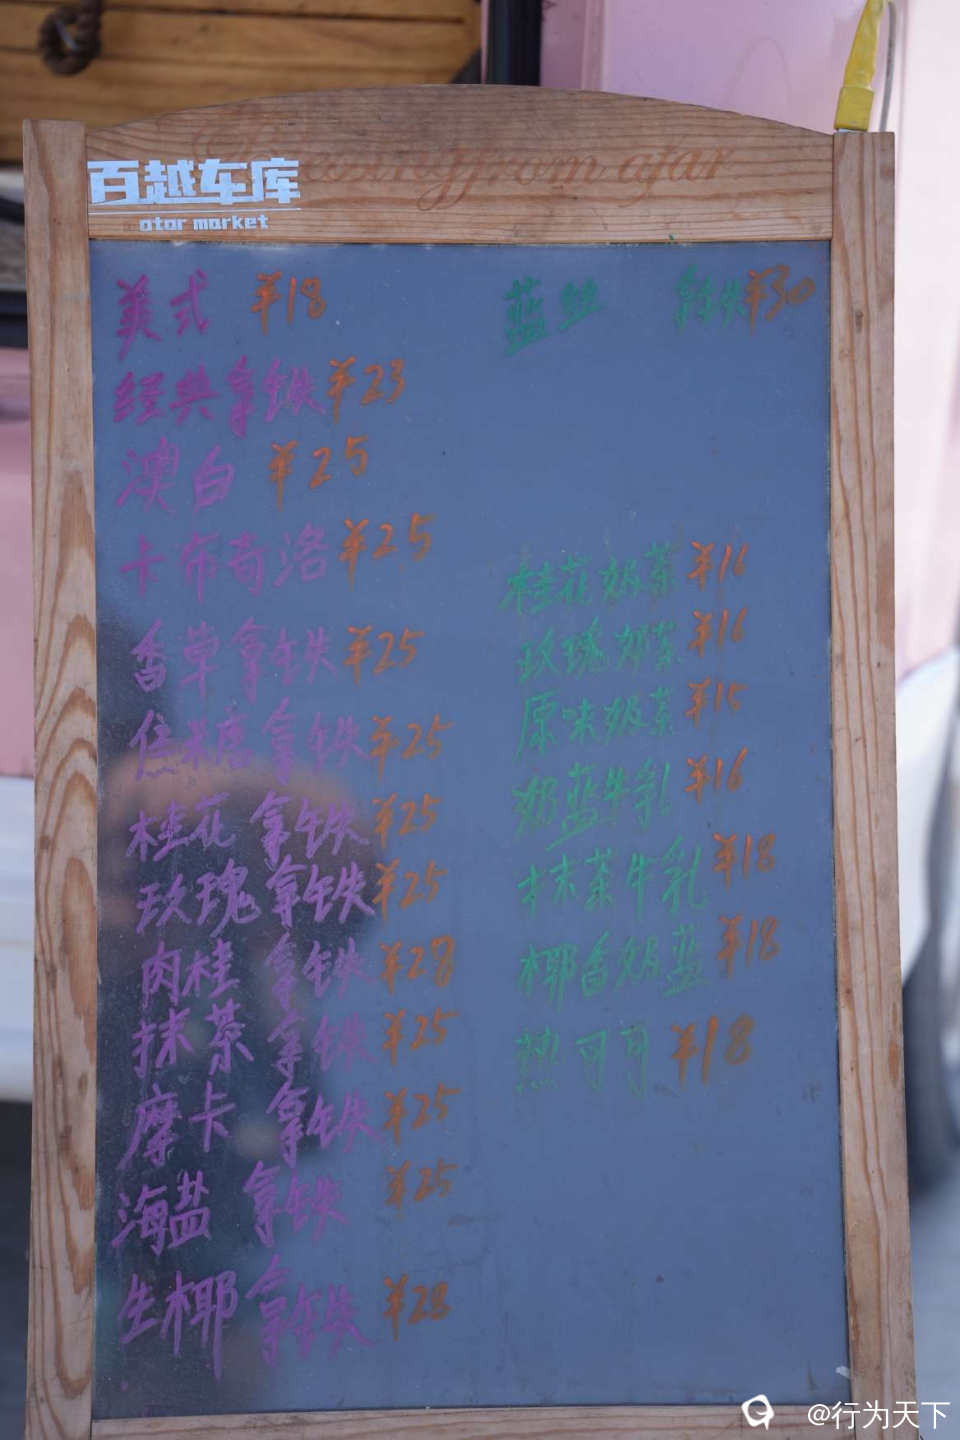 百越车库
atar market
美式 ¥18
经典拿铁 ¥23
澳白 ¥25
卡布奇洛 ¥25
香草拿铁 ¥25
焦糖拿铁 ¥25
桂花拿铁 ¥25
玫瑰拿铁 ¥25
肉桂拿铁 ¥28
抹茶拿铁 ¥25
摩卡拿铁 ¥25
海盐拿铁 ¥25
生椰拿铁 ¥28
蓝 拿铁 ¥30
桂花奶茶 ¥16
玫瑰奶茶 ¥16
原味奶茶 ¥15
奶蓝牛乳 ¥16
抹茶牛乳 ¥18
椰香奶蓝 ¥18
热可可 ¥18
@行为天下